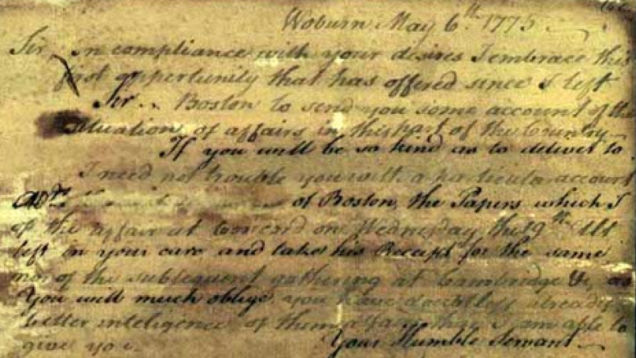 Woburn May 6th 1775
Sir in compliance with your desires I embrace this
first opportunity that has offered since I left
Sir.. Boston to send you some account of the
situation, of affairs in this part of the Country
If you will be so kind as to deliver to
I need not trouble you with a particular account
of Boston, the Papers which I
of the affair at Concord on Wednesday the 19th Ult
left in your care and take his Receipt for the same
nor of the subsequent gathering at Cambridge &c, as
You will much oblige, you have doubtless already
better inteligence of than I am able to
give you. Your Humble Servant